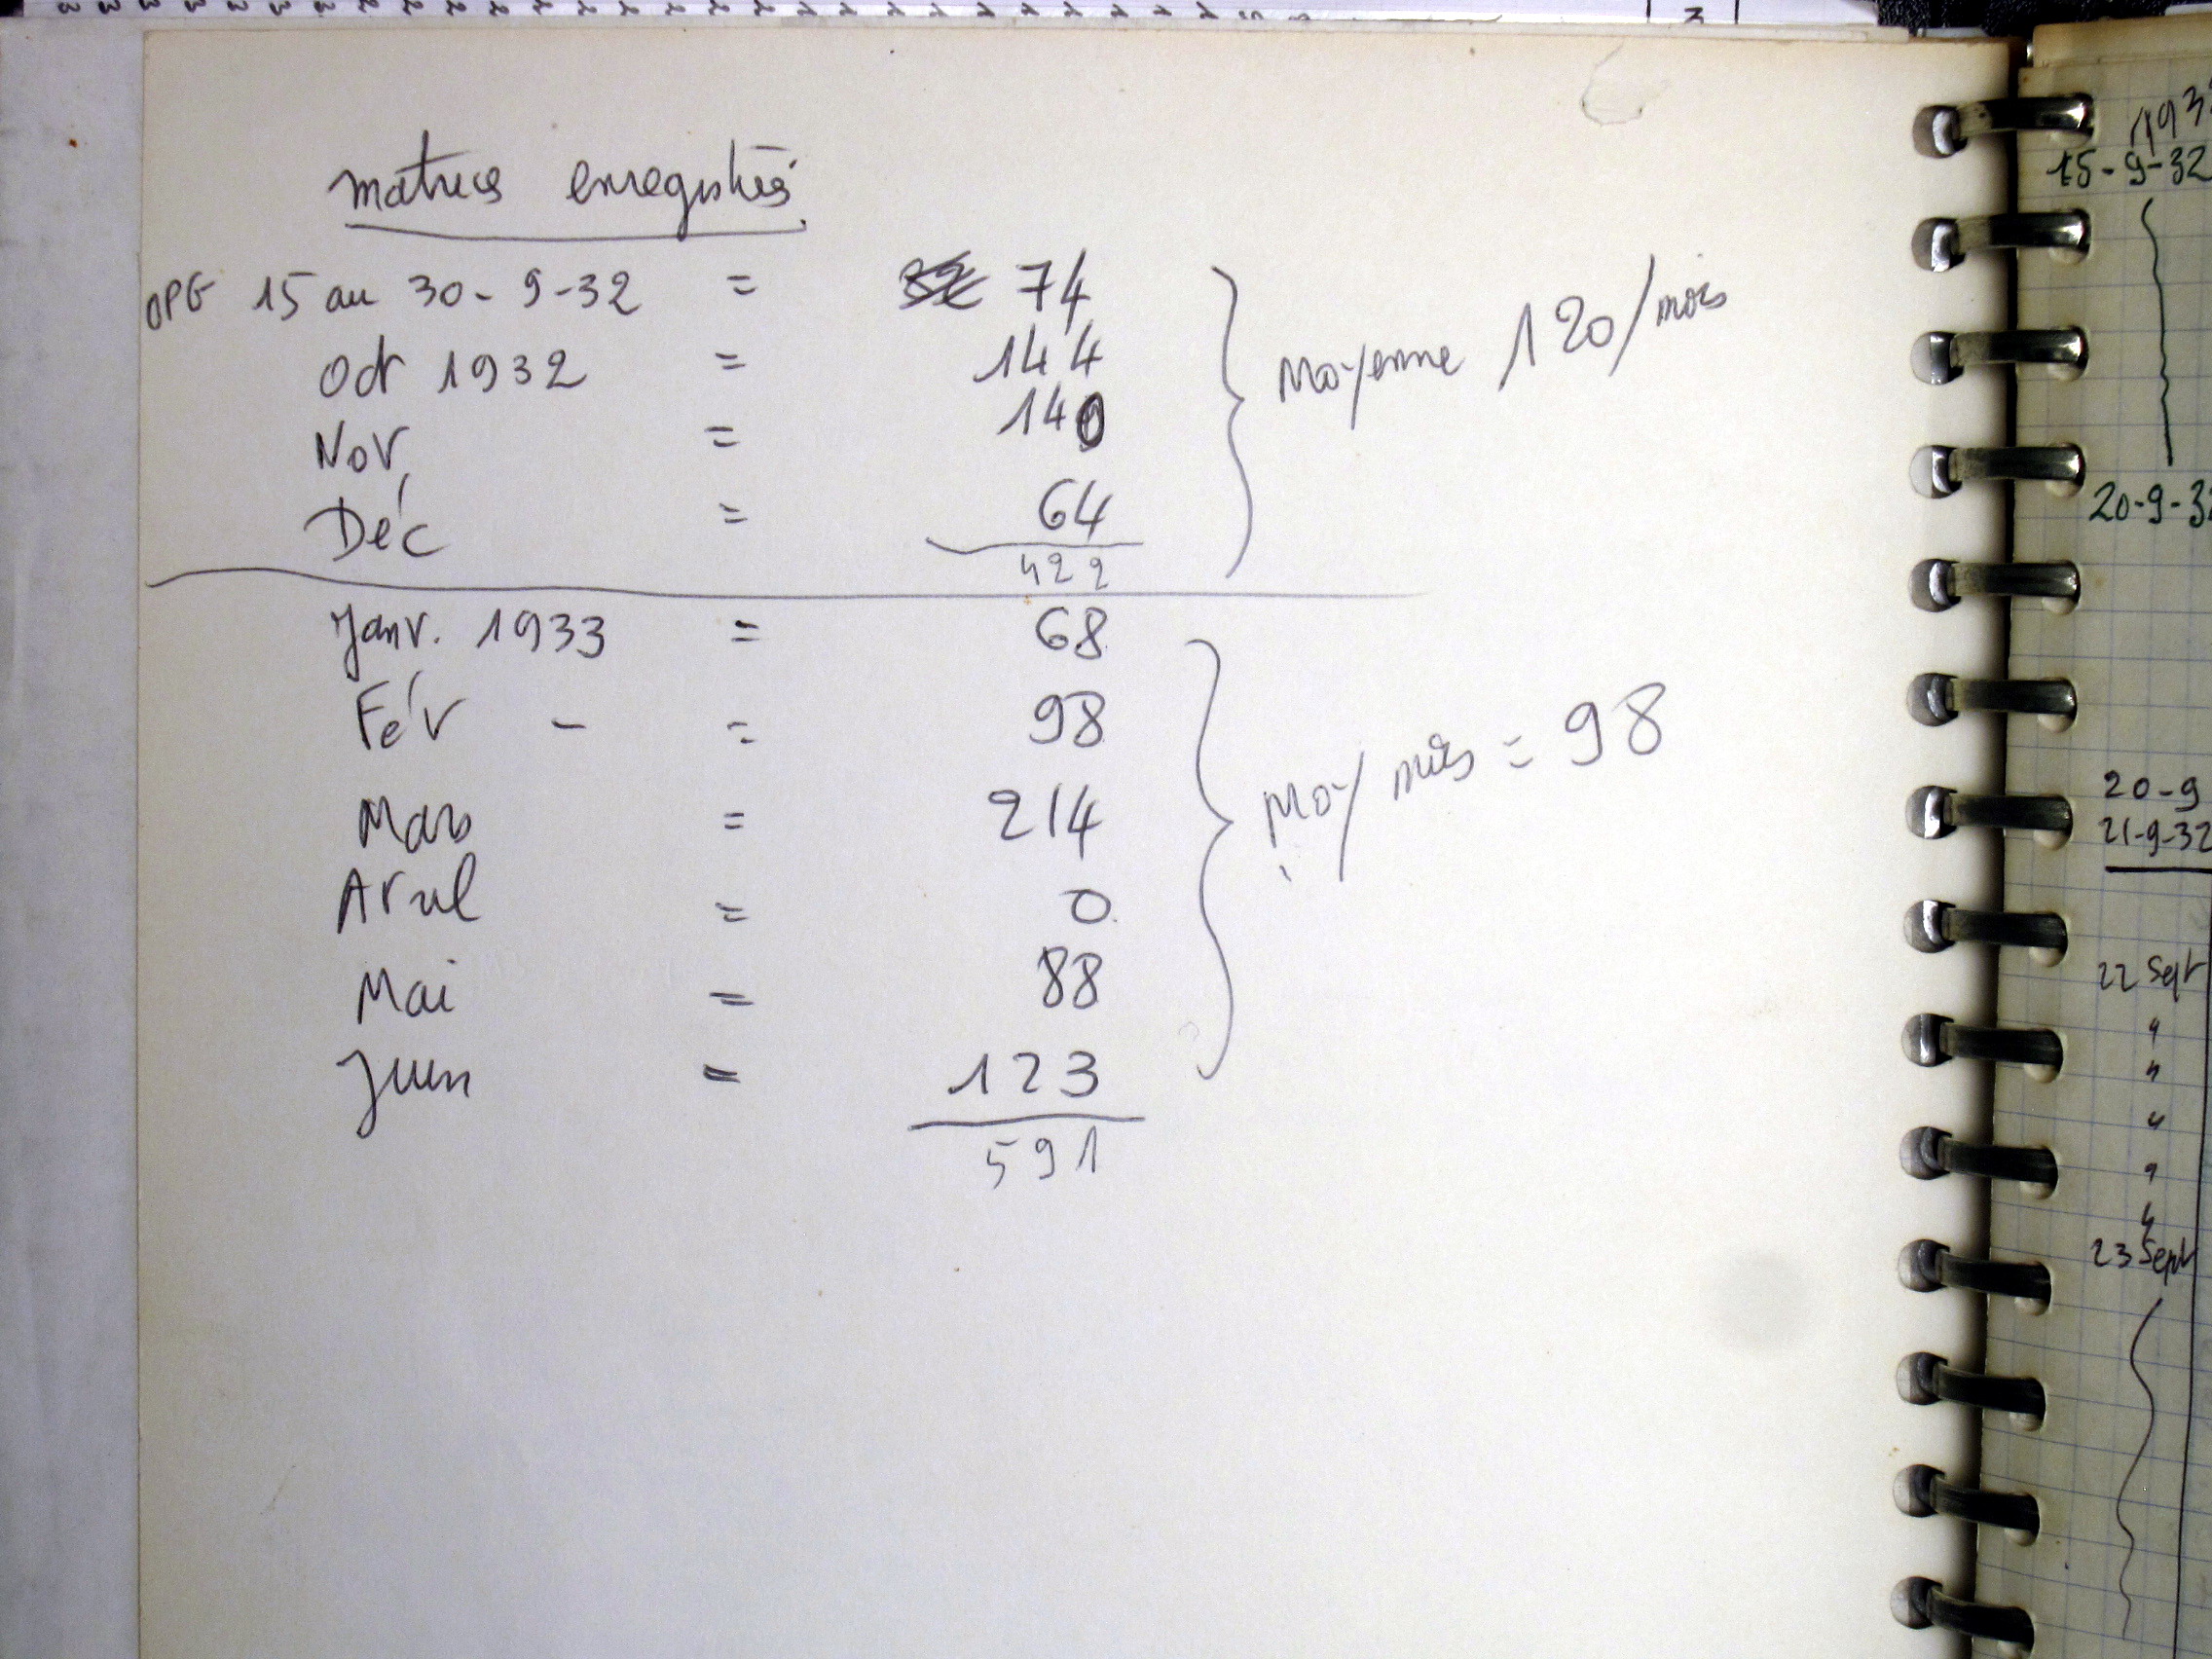 matrices enregistrées
OPG 15 au 30-9-32 = 74
Oct 1932 = 144
Nov, = 140
Déc = 64
422
Moyenne 120/mois
Janv. 1933 = 68
Fév - = 98
Mars = 214
Avril = 0
Mai = 88
Juin = 123
591
Moy/mois = 98
15-9-32
20-9-3
20-9
21-9-32
22 Sept
23 Sept